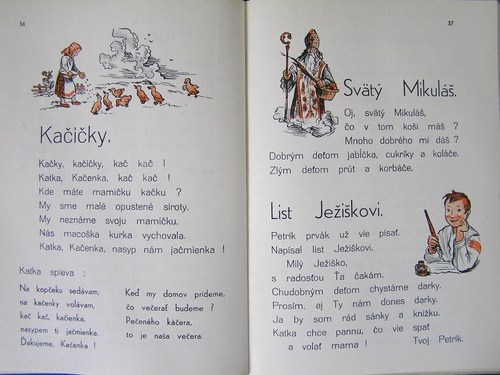 36
Kačičky.
Kačky, kačičky, kač kač !
Katka, Kačenka, kač kač !
Kde máte mamičku kačku ?
My sme malé opustené siroty.
My neznáme svoju mamičku.
Nás macoška kurka vychovala.
Katka, Kačenka, nasyp nám jačmienka !
Katka spieva :
Na kopčeku sedávam,
na kačenky volávam,
kač kač, kačienka,
nasypem ti jačmienka.
Ďakujeme, Kačenka !
Keď my domov prídeme,
čo večerať budeme ?
Pečeného káčera,
to je naša večera.
37
Svätý Mikuláš.
Oj, svätý Mikuláš,
čo v tom koši máš ?
Mnoho dobrého mi dáš ?
Dobrým deťom jabĺčka, cukríky a koláče.
Zlým deťom prút a korbáče.
List Ježiškovi.
Petrík prvák už vie písať.
Napísal list Ježiškovi.
Milý Ježiško,
s radosťou Ťa čakám.
Chudobným deťom chystáme darky.
Prosím, aj Ty nám dones darky.
Ja by som rád sánky a knižku.
Katka chce pannu, čo vie spať
a volať mama !
Tvoj Petrík.